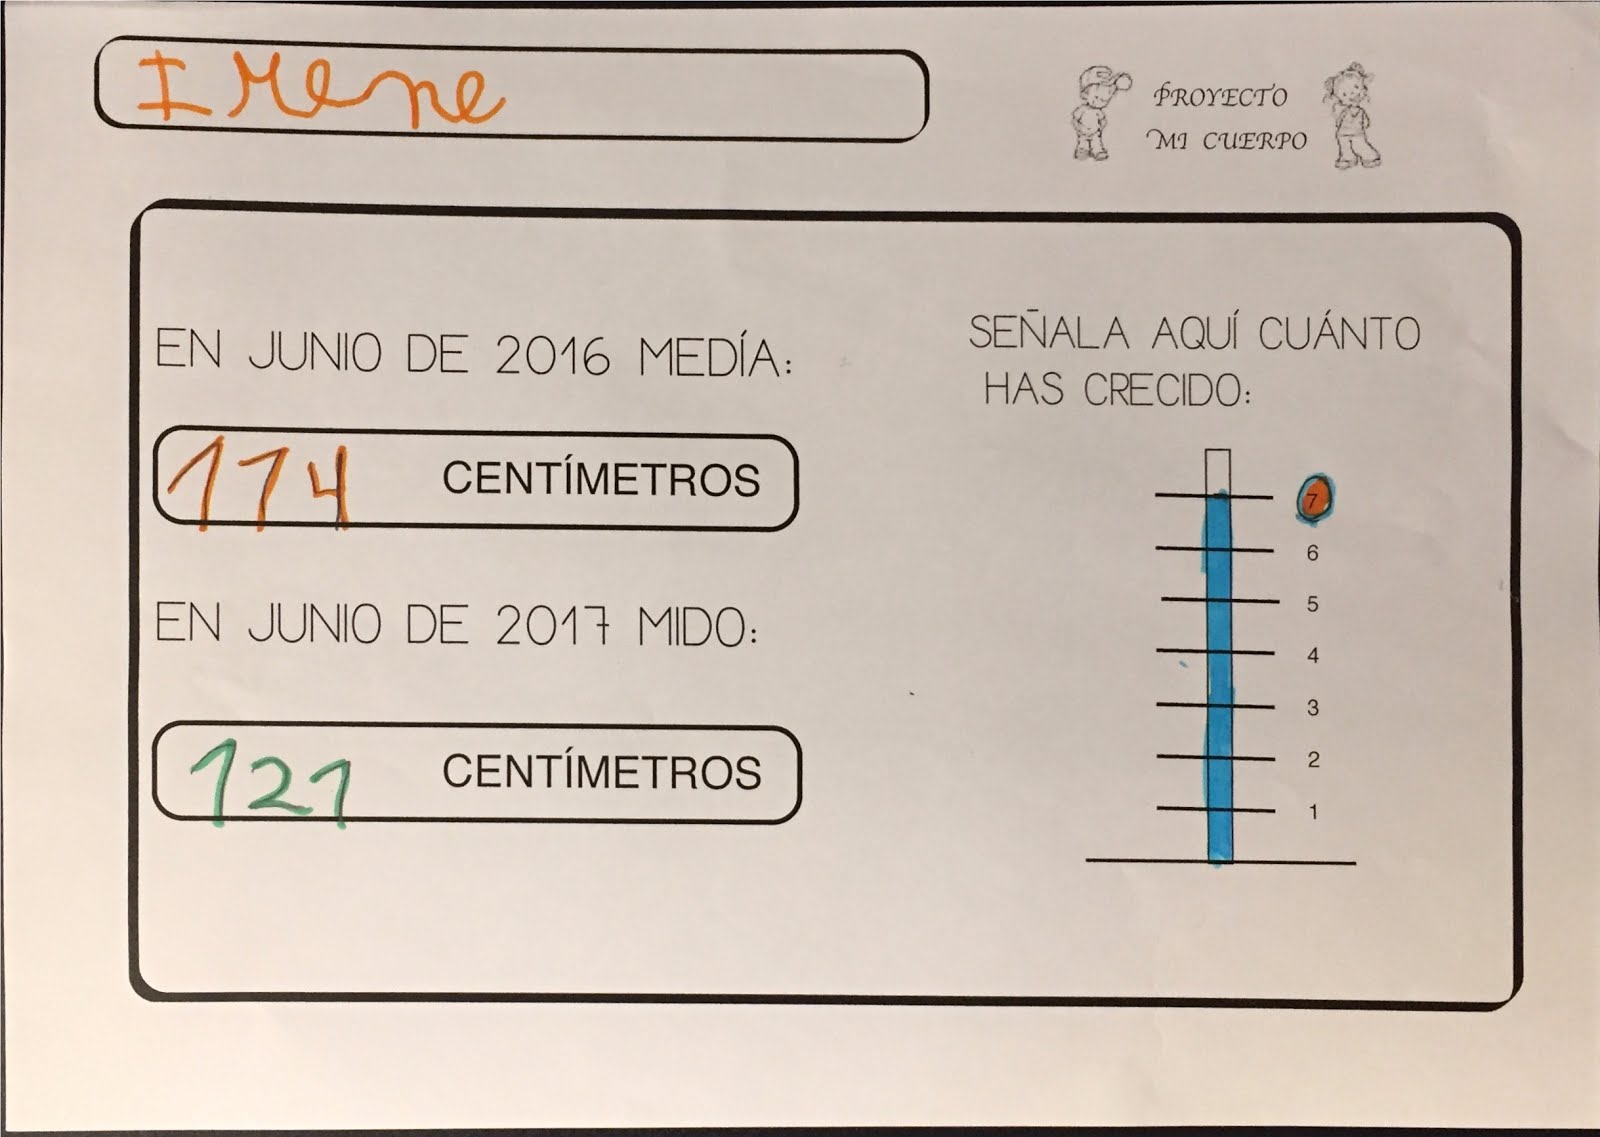 Irene
PROYECTO
MI CUERPO
EN JUNIO DE 2016 MEDÍA:
114 CENTÍMETROS
EN JUNIO DE 2017 MIDO:
121 CENTÍMETROS
SEÑALA AQUÍ CUÁNTO
HAS CRECIDO:
7
6
5
4
3
2
1